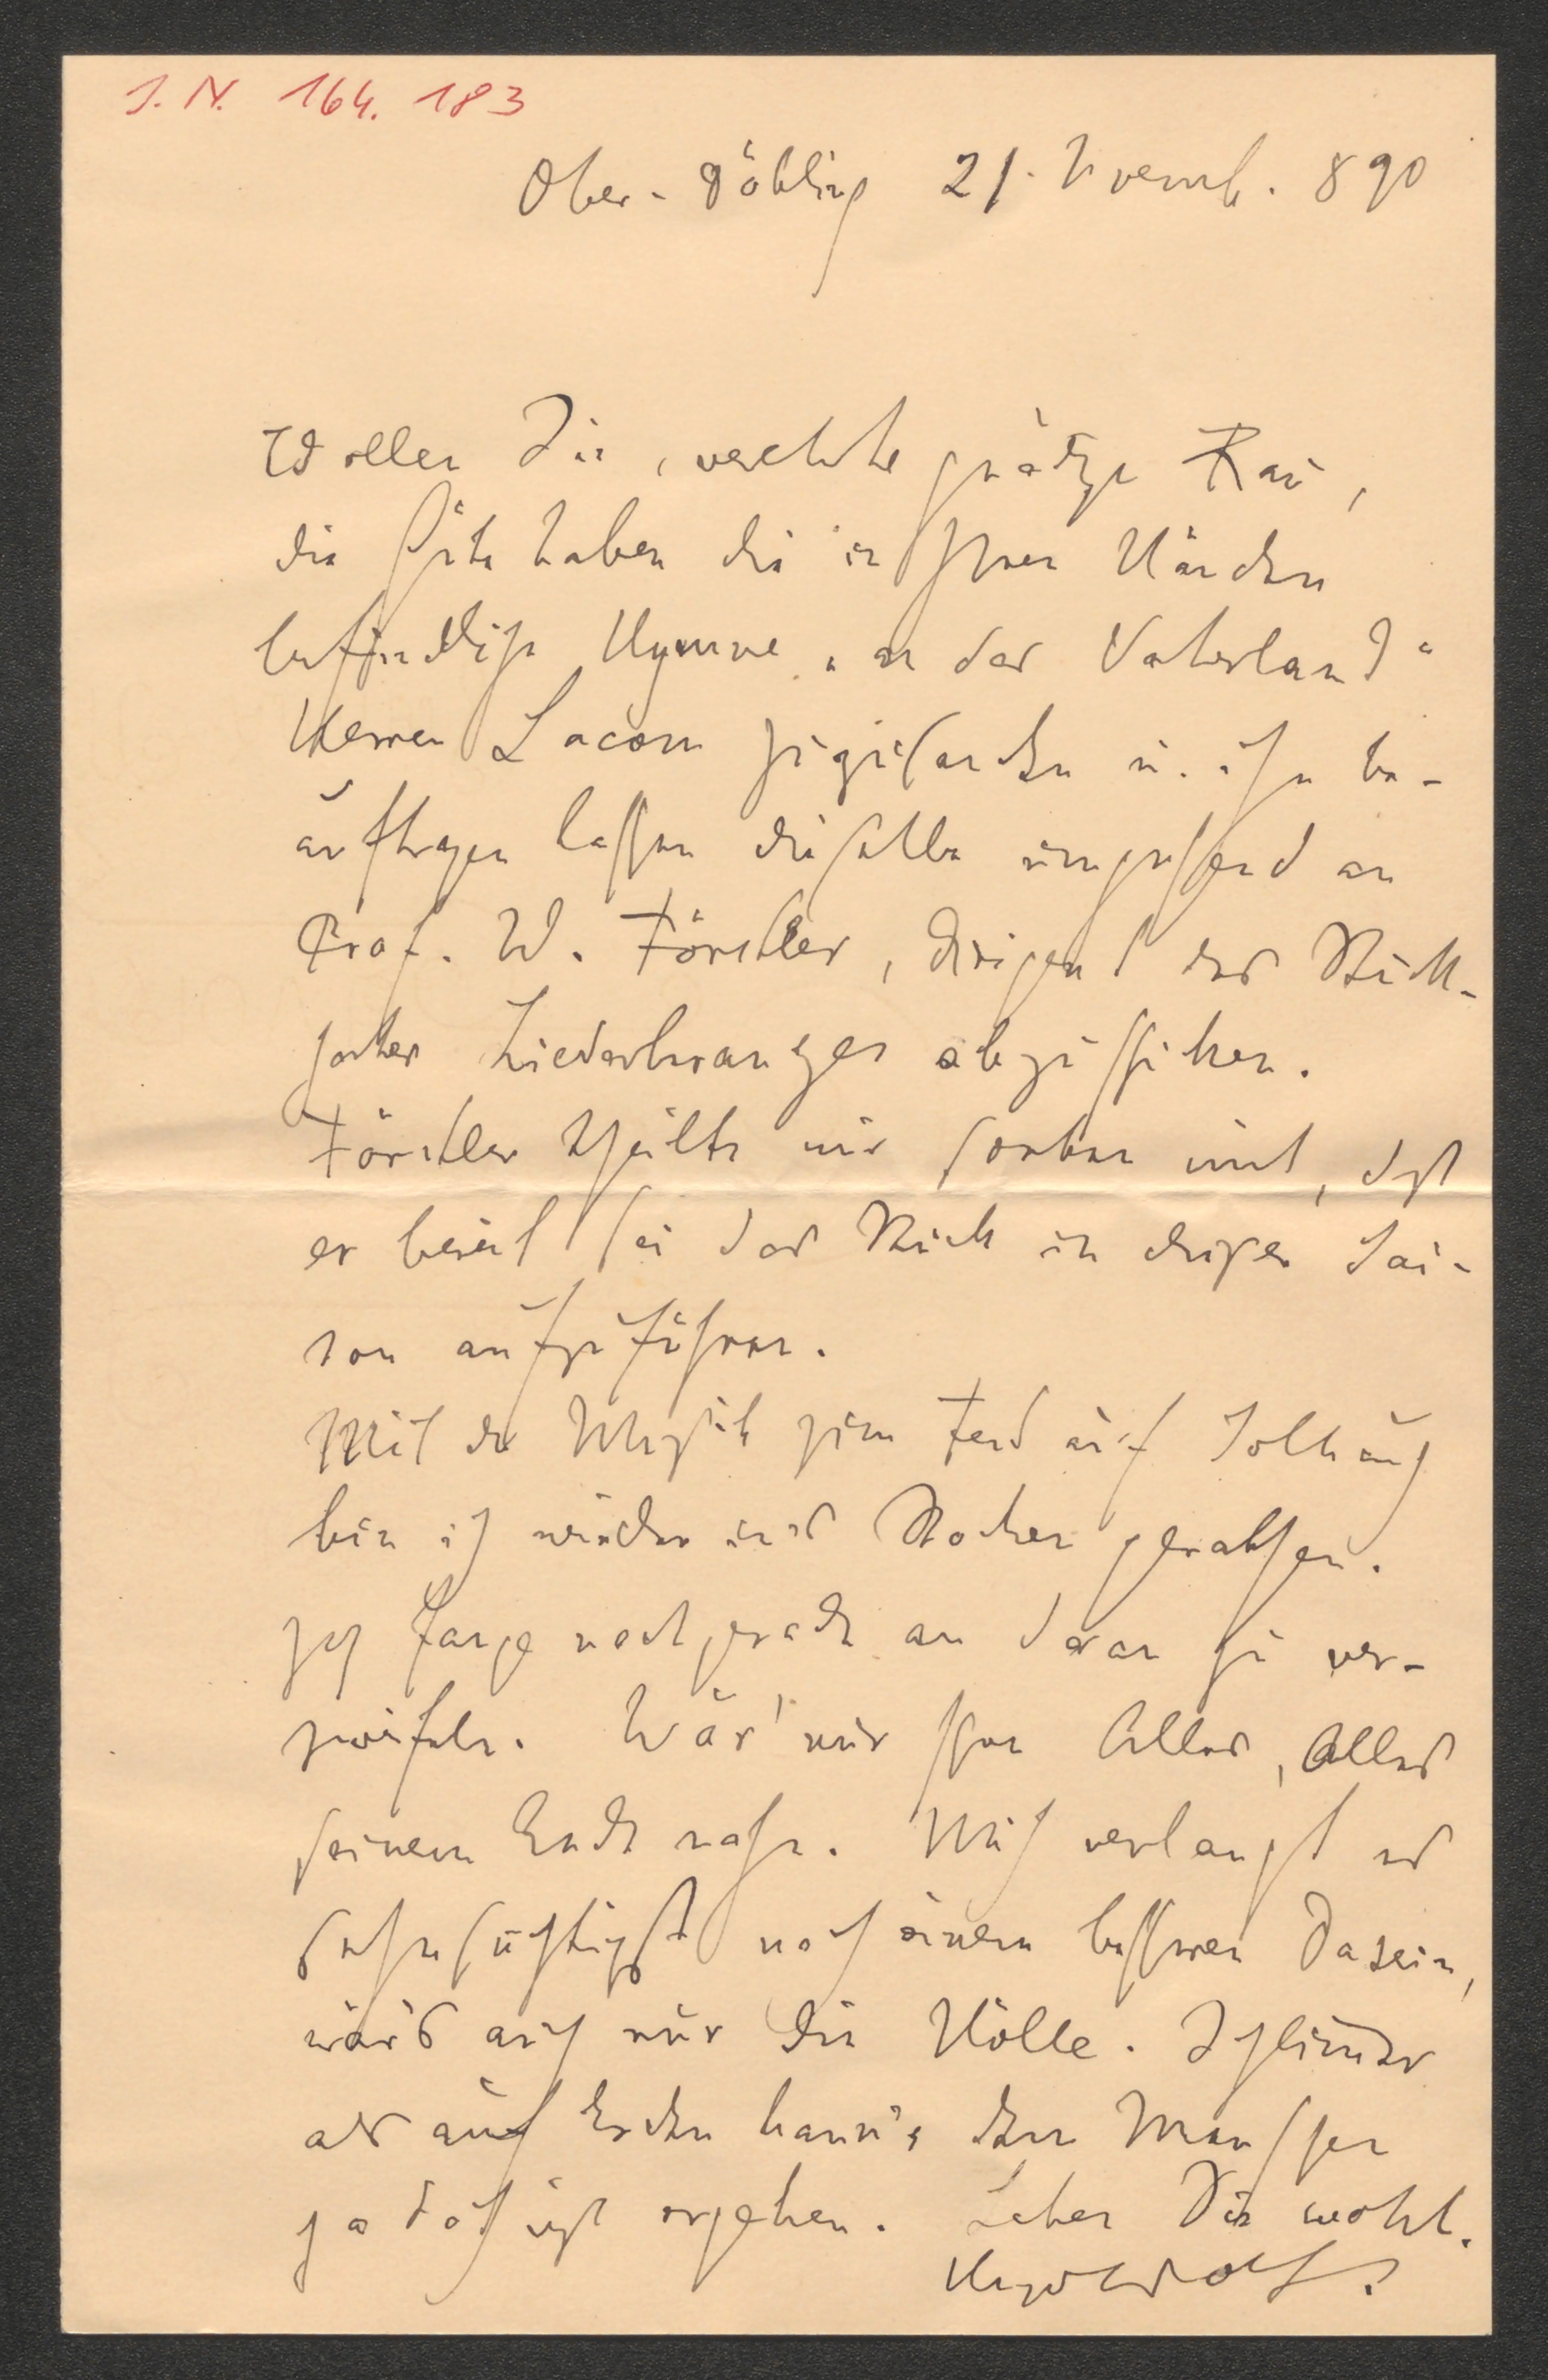 J. N. 164. 183
Ober-Döbling 21. Novemb. 890
Wollen Sie, verehrte gnädige Frau,
die Güte haben die in Ihren Händen
befindliche Hymne „an das Vaterland“
Herren Lacom zuzusenden u. ihn be-
auftragen lassen dieselbe umgehend an
Prof. W. Förstler, Dirigent des Stutt-
garter Liederkranzes abzuschicken.
Förstler theilte mir soeben mit, daß
er bereit sei das Stück in dieser Sai-
son aufzuführen.
Mit der Musik zum Fest auf Solhaug
bin ich wieder in's Stocken gerathen.
Ich fange nachgerade an daran zu ver-
zweifeln. Wär' nur schon Alles, Alles
seinem Ende nahe. Mich verlangt es
sehnsüchtigst nach einem besseren Dasein,
wär's auch nur die Hölle. Schlimmer
als auf Erden kann's dem Menschen
ja doch nicht ergehen. Leben Sie wohl.
Hugo Wolf.